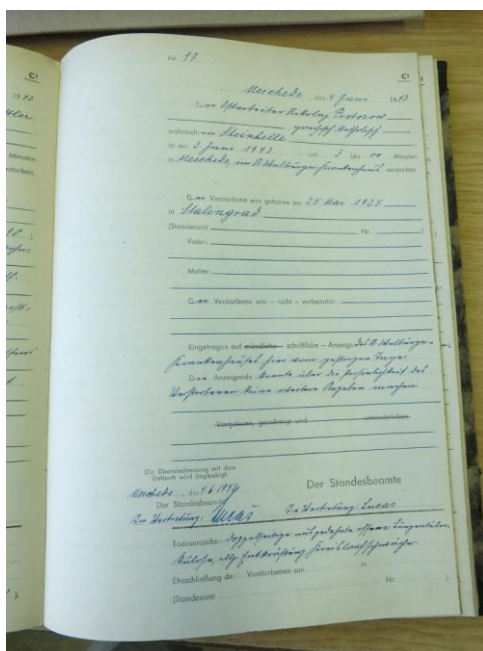 Nr. 97
C1
Meschede, den 4. Juni 1943
Der Ostarbeiter Nikolaj
griechisch katholisch
wohnhaft in Steinhelle
ist am 2. Juni 1943 um 2 Uhr 00 Minuten
in Meschede, im St. Walburga-Krankenhaus verstorben.
Der Verstorbene war geboren am 25. Mai 1925
in Stalingrad
(Standesamt Nr. )
Vater:
Mutter:
Der Verstorbene war – nicht – verheiratet.
Eingetragen auf mündliche – schriftliche – Anzeige des St. Walburga-
Krankenhauses hier vom gestrigen Tage
Die Anzeigende konnte über die Persönlichkeit des
Verstorbenen keine weitere Angaben machen
Vorgelesen, genehmigt und unterschrieben
Die Übereinstimmung mit dem
Erstbuch wird beglaubigt.
Meschede, den 4.6.19
Der Standesbeamte
Der Standesbeamte
In Vertretung: Lucas
In Vertretung: Lucas
Todesursache: doppelseitige ausgedehnte offene Lungentuber-
kulose, allg. Entkräftung, Kreislaufschwäche
Eheschließung de Verstorbenen am in
(Standesamt Nr. )